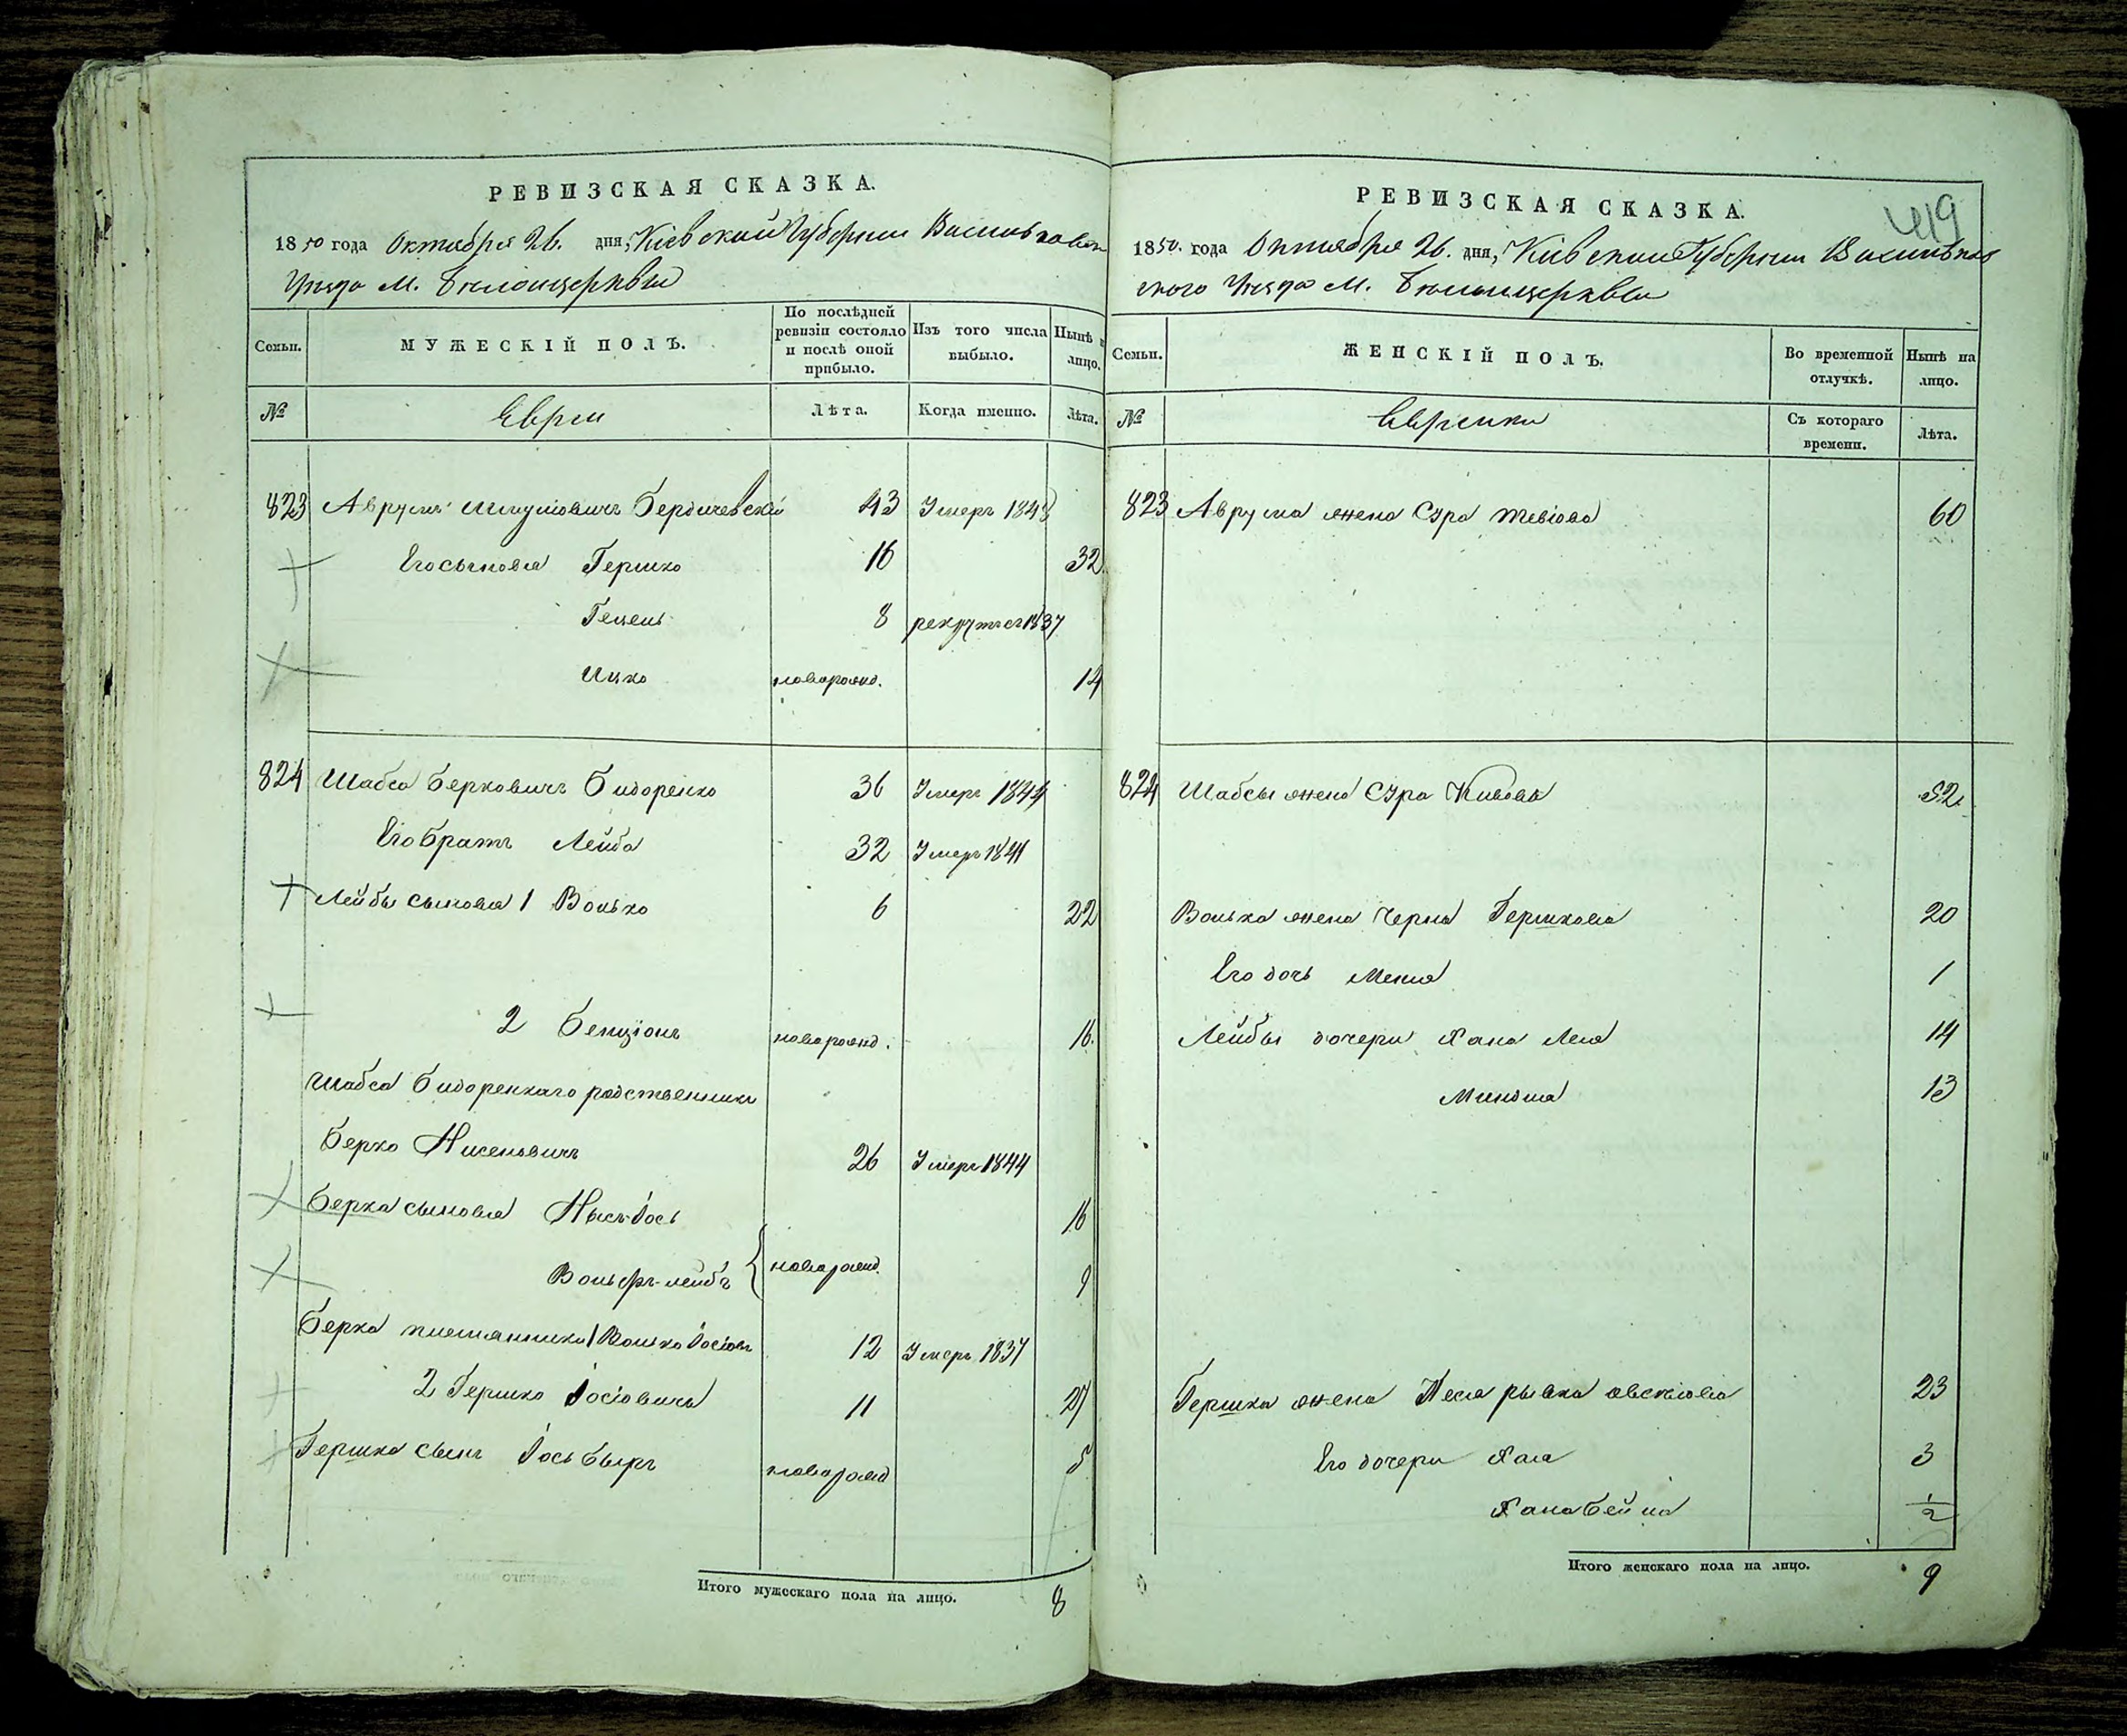 РЕВИЗСКАЯ СКАЗКА.
1850 года Октября 26. дня, Кіевской Губерніи Васильковск
Уезда М. Белоицерквы
Семьи. МУЖЕСКІЙ ПОЛЪ. По послѣдней ревизіи состояло и послѣ оной прибыло. Изъ того числа выбыло. Нынѣ н лицо.
№ Евреи Лѣта. Когда именно. Лѣта.
823 Аврумъ Шмуліовичъ Бердичевскій 43 Умеръ 1848
Его сыновья Гершко 16 32
Гецель 8 рекрутъ съ 1837
Ицко новорожд. 14
824 Шабса Берковичъ Бидоренко 36 Умеръ 1844
Его братъ Лейба 32 Умеръ 1841
Лейбы сыновья 1 Волько 6 22
2 Бенціонъ новорожд. 16.
Шабса Бидоренкаго родственники
Берко Нисеновичъ 26 Умеръ 1844
Берка сыновья Нысъ-Іось 16
Вольфъ-лейбъ новорожд. 9
Берка племянники 1 Волько Іосіовъ 12 Умеръ 1837
2 Гершко Іосіовичъ 11 27
Гершка сынъ Іось Быръ новорожд 5
Итого мужескаго пола на лицо. 8
РЕВИЗСКАЯ СКАЗКА.
419
1850. года Октября 26. дня, Кіевской Губерніи Васильков
скаго Уезда М. Белоицерквы
Семьи. ЖЕНСКІЙ ПОЛЪ. Во временной отлучкѣ. Нынѣ на лицо.
№ Еврейки Съ котораго времени. Лѣта.
823 Аврума жена Сура Тевіова 60
824 Шабсы жена Сура Кивова 52
Волька жена Черна Гершкова 20
Его дочь Меня 1
Лейбы дочери Хана Лея 14
Миндля 13
Гершка жена Песя рывка 23
Его дочери Хая 3
Хана Бейла 1/2
Итого женскаго пола на лицо. 9